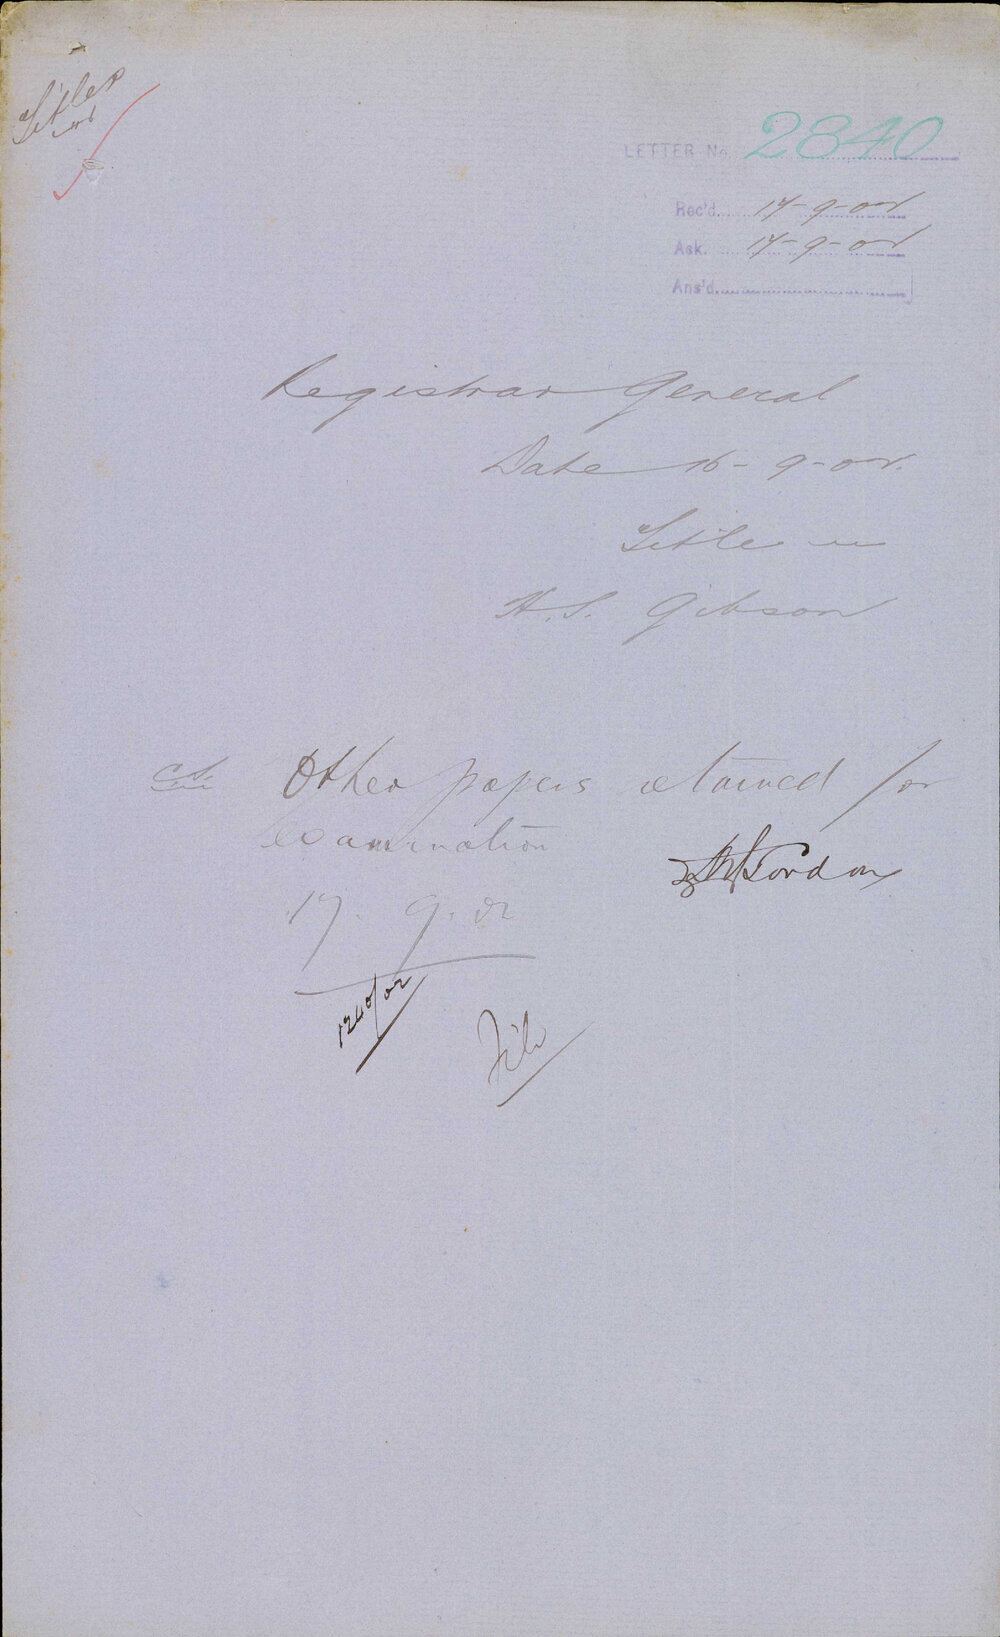 Titles
LETTER No. 2840
Rec'd. 17-9-02
Ack. 17-9-02
Ans'd.
Registrar General
Date 16-9-02.
Title in
H.S. Gibson
Other papers retained for
examination
Gordon
17. 9. 02
File